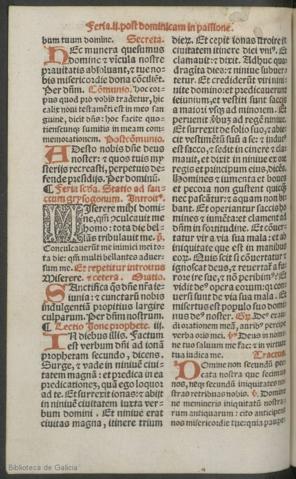 Feria.ii.post dominicam in passione.
bum tuum domine. Secreta.
HEc munera quesumus
domine ⁊ vincula nostre
prauitatis absoluant, ⁊ tue no-
bis misericordie dona
Per dñm. Cõmunio. Hoc cor-
pus quod pro vobis tradetur, hic
calix noui testamẽti est in meo san
guine, dicit dñs: hoc facite quo-
tienscunque sumitis in meam com-
memorationem. Postcõmunio.
ADesto nobis dñe deus
noster: ⁊ quos tuis my
sterijs recreasti, perpetuis de-
fende presidijs. Per dominũ.
Statio ad san-
ctum grysogonum. Introit⁹.
MIserere mihi domi
ne, qm̃ cõculcauit me
homo: tota die bel-
lãs tribulauit me. ps̃.
Conculcauerũt me inimici mei to
ta die: qm̃ multi bellantes aduer-
sum me. Et repetitur introitus
Miserere. ⁊ cetera. Oratio.
SAnctifica qs̃ dñe nr̃a ie-
iunia: ⁊ cunctarũ nobis
indulgentiã propitius largire
culparum. Per dñm nostrum.
Lectio Jone prophete. iij.
IN diebus illis. Factum
est verbum dñi ad ionã
prophetam secundo, dicens.
Surge, ⁊ vade in niniuẽ ciui-
tatem magnã: ⁊ predica in ea
predicationez, quã ego loquor
ad te. Et surrexit ionas: ⁊ abijt
in niniuẽ ciuitatem iuxta ver-
bum domini. Et niniue erat
ciuitas magna, itinere trium
dierũ. Et cepit ionas introire in
ciuitatem itinere diei vni⁹. Et
clamauit: ⁊ dixit. Adhuc qua-
draginta dies: ⁊ niniue subuer
tetur. Et crediderũt viri nini-
uite domino: ⁊ predicauerunt
ieiunium, et vestiti sunt saccis
a maiori vsqz ad minorem. Et
peruenit ad regẽ niniue.
Et surrexit de solio suo, ⁊ abie-
cit vestimẽta sua a se: ⁊ indut⁹
est sacco, ⁊ sedit in cinere ⁊ cla-
mauit, et dixit in niniue ex ore
regis et principum eius, dicẽs.
Homines ⁊ iumenta et boues
et pecora non gustent quicqz
nec pascãtur: ⁊ aquam non bi-
bant. Et operiantur saccis ho
mines ⁊ iumẽta: et clament ad
dñm in fortitudine. Et cõuer-
tatur vir a via sua mala: et ab
iniquitate que est in manibus
eorum. Quis scit si cõuertatur ⁊
ignoscat deus, et reuertat̃ a fu-
rore ire sue, ⁊ nõ peribim⁹? Et
vidit de⁹ opera eorum: qz con-
uersi sunt de via sua mala. Et
misertus est populo suo domi-
nus de⁹ noster. De⁹ exau
di orationem meã, auribz percipe
verba oris mei. Deus in nomi-
ne tuo saluum me fac: ⁊ in virtute
tua iudica me. Tractus.
DOmine non secundũ pec-
cata nostra que fecimus
nos, neqz secundũ iniquitates no-
stras retribuas nobis. Domi-
ne ne memineris iniquitatũ nostra
rum antiquarum: cito anticipent
nos misericordie tue: quia paupe-
Biblioteca de Galicia